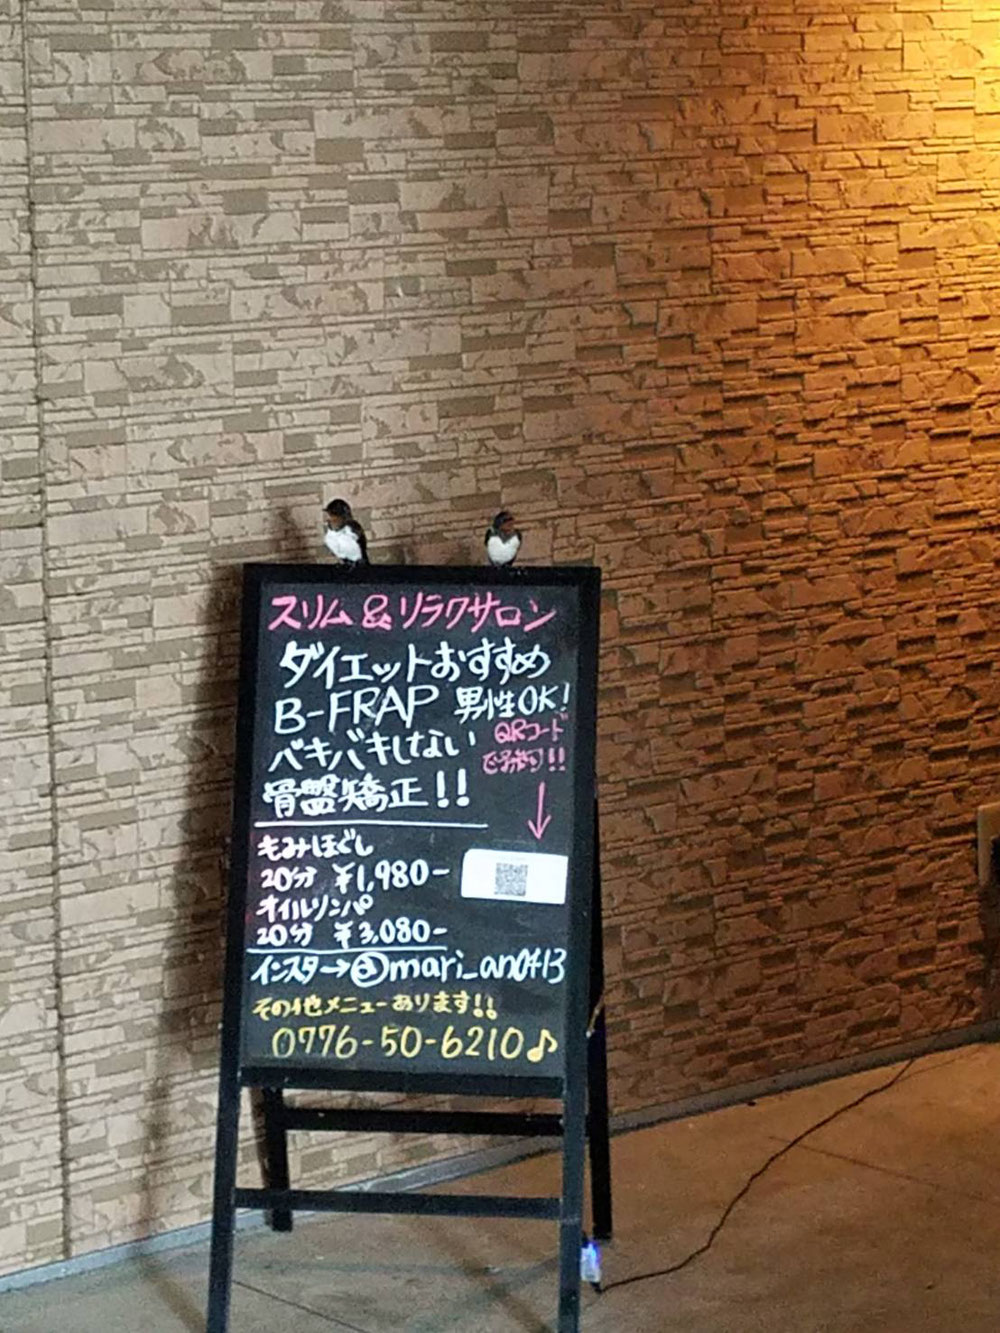 スリム&リラクサロン
ダイエットおすすめ
B-FRAP 男性OK!
QRコード
で予約可!!
バキバキしない
骨盤矯正!!
もみほぐし
20分 ¥1,980-
オイルリンパ
20分 ¥3,080-
インスタ→@mari_an0413
その他メニューあります!!
0776-50-6210♪